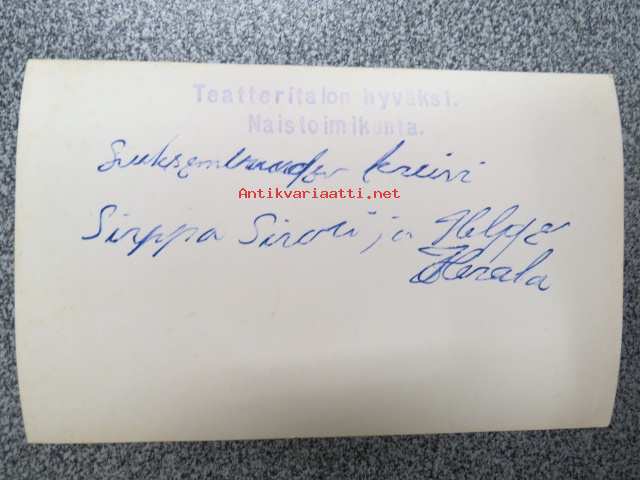 Teatteritalon hyväksi.
Naistoimikunta.
kreivi
Antikvariaatti.net
Sirppa Sivori ja Helge
Herala